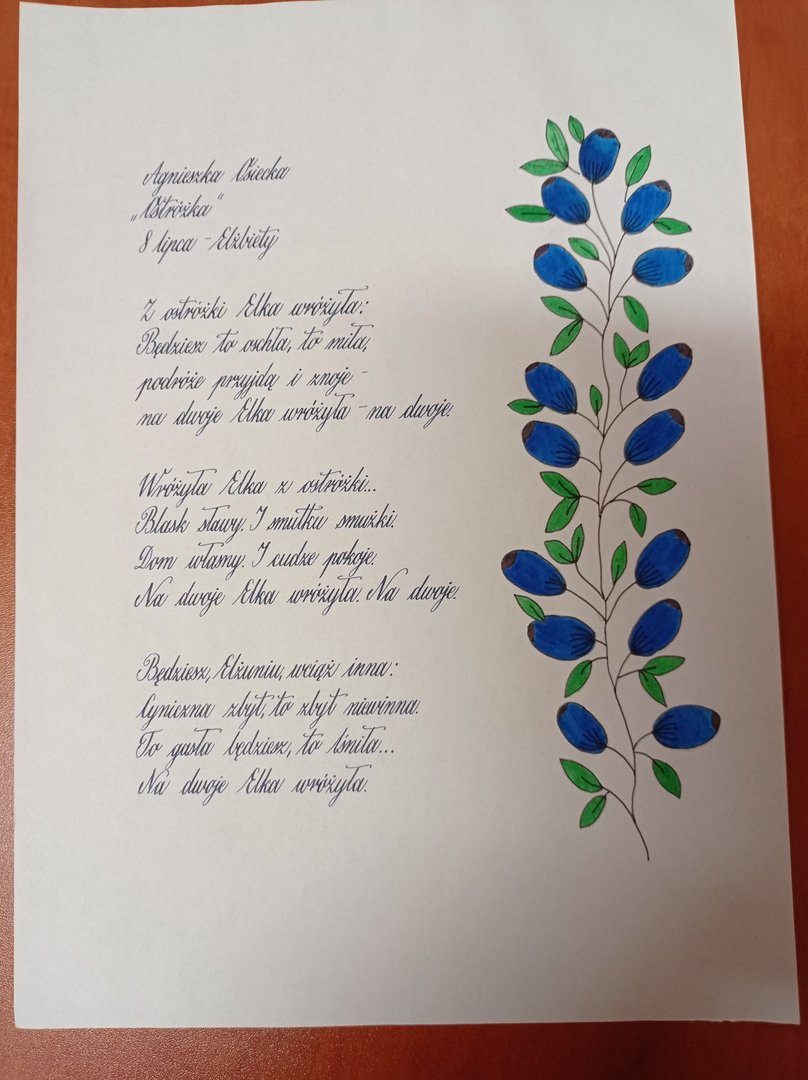 Agnieszka Osiecka
„Ostróżka"
8 lipca - Elżbiety
Z ostróżki Elka wróżyła:
Będziesz to oschła, to miła,
podróże przyjdą i znoje -
na dwoje Elka wróżyła - na dwoje.
Wróżyła Elka z ostróżki...
Blask sławy. I smutku smużki.
Dom własny. I cudze pokoje.
Na dwoje Elka wróżyła. Na dwoje.
Będziesz, Elżuniu, wciąż inna:
Cyniczna zbyt, to zbyt niewinna.
To gasła będziesz, to lśniła...
Na dwoje Elka wróżyła.